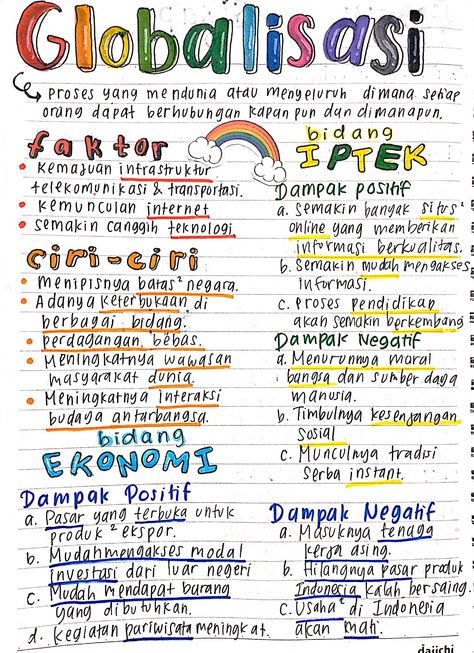 Globalisasi
proses yang mendunia atau menyeluruh dimana setiap
orang dapat berhubungan kapan pun dan dimanapun.
faktor
• Kemajuan infrastruktur
telekomunikasi & transportasi.
• Kemunculan internet
• Semakin canggih teknologi
ciri-ciri
• Menipisnya batas² negara.
• Adanya keterbukaan di
berbagai bidang.
• perdagangan bebas.
• Meningkatnya wawasan
masyarakat dunia.
• Meningkatnya interaksi
budaya antarbangsa.
bidang
IPTEK
Dampak positif
a. Semakin banyak situs²
online yang memberikan
informasi berkualitas.
b. Semakin mudah mengakses
informasi.
c. proses pendidikan
akan semakin berkembang
Dampak Negatif
a. Menurunnya moral
bangsa dan sumber daya
manusia.
b. Timbulnya kesenjangan
sosial
c. Munculnya tradisi
serba instant.
bidang
EKONOMI
Dampak Positif
a. Pasar yang terbuka untuk
produk² ekspor.
b. Mudah mengakses modal
investasi dari luar negeri
c. Mudah mendapat barang
yang dibutuhkan.
d. kegiatan pariwisata meningkat.
Dampak Negatif
a. Masuknya tenaga
kerja asing.
b. Hilangnya pasar produk
Indonesia kalah bersaing.
c. Usaha² di Indonesia
akan mati.
daiichi